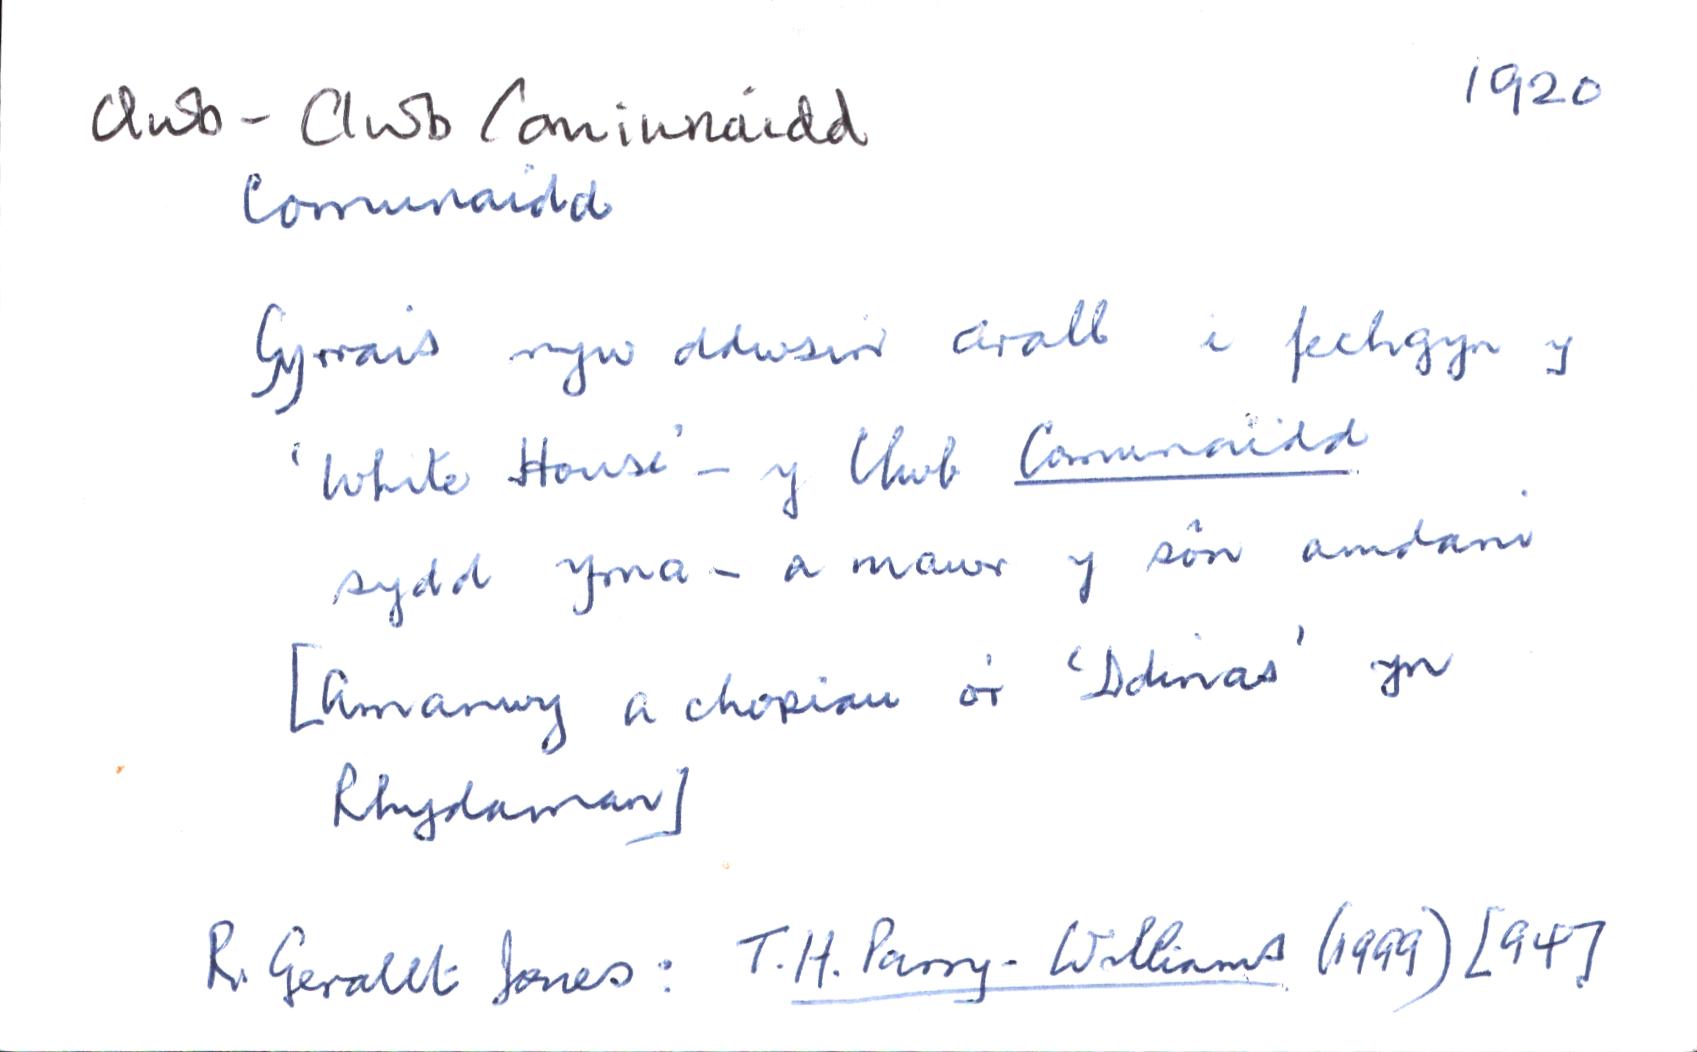 1920
Clwb - Clwb Comiwnaidd
Comunaidd
Gyrrais ryw ddwsin arall i fechgyn y
'White House' - y Clwb Comunaidd
sydd yma - a mawr y sôn amdani
[Amanwy a chopiau o'r 'Ddinas' yn
Rhydaman]
R. Gerallt Jones: T.H. Parry-Williams (1999) [94]